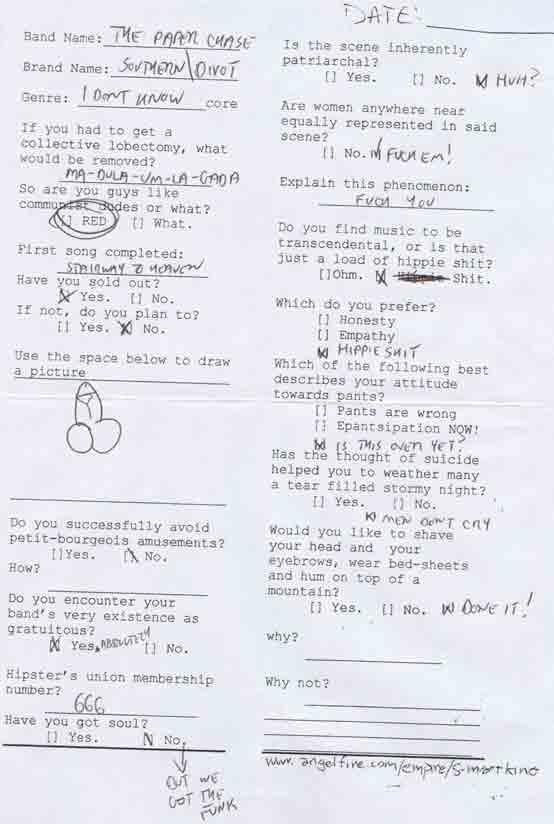 Band Name: THE PAPER CHASE
Brand Name: SOUTHERN\DIVOT
Genre: I DON'T KNOW core
If you had to get a
collective lobectomy, what
would be removed?
MA-DULA-UM-LA-GADA
So are you guys like
communist dudes or what?
[] RED [] What.
First song completed:
STAIRWAY 2 HEAVEN
Have you sold out?
[] Yes. [] No.
If not, do you plan to?
[] Yes. [] No.
Use the space below to draw
a picture
Do you successfully avoid
petit-bourgeois amusements?
[]Yes. [] No.
How?
Do you encounter your
band's very existence as
gratuitous?
[] Yes. ABSOLUTELY [] No.
Hipster's union membership
number?
666
Have you got soul?
[] Yes. [] No.
BUT WE
GOT THE
FUNK
DATE:
Is the scene inherently
patriarchal?
[] Yes. [] No. [] HUH?
Are women anywhere near
equally represented in said
scene?
[] No. [] FUCK EM!
Explain this phenomenon:
FUCK YOU
Do you find music to be
transcendental, or is that
just a load of hippie shit?
[]Ohm. [] Hippie Shit.
Which do you prefer?
[] Honesty
[] Empathy
[] HIPPIE SHIT
Which of the following best
describes your attitude
towards pants?
[] Pants are wrong
[] Epantsipation NOW!
[] IS THIS OVER YET?
Has the thought of suicide
helped you to weather many
a tear filled stormy night?
[] Yes. [] No.
[] MEN DON'T CRY
Would you like to shave
your head and your
eyebrows, wear bed-sheets
and hum on top of a
mountain?
[] Yes. [] No. [] DONE IT!
why?
Why not?